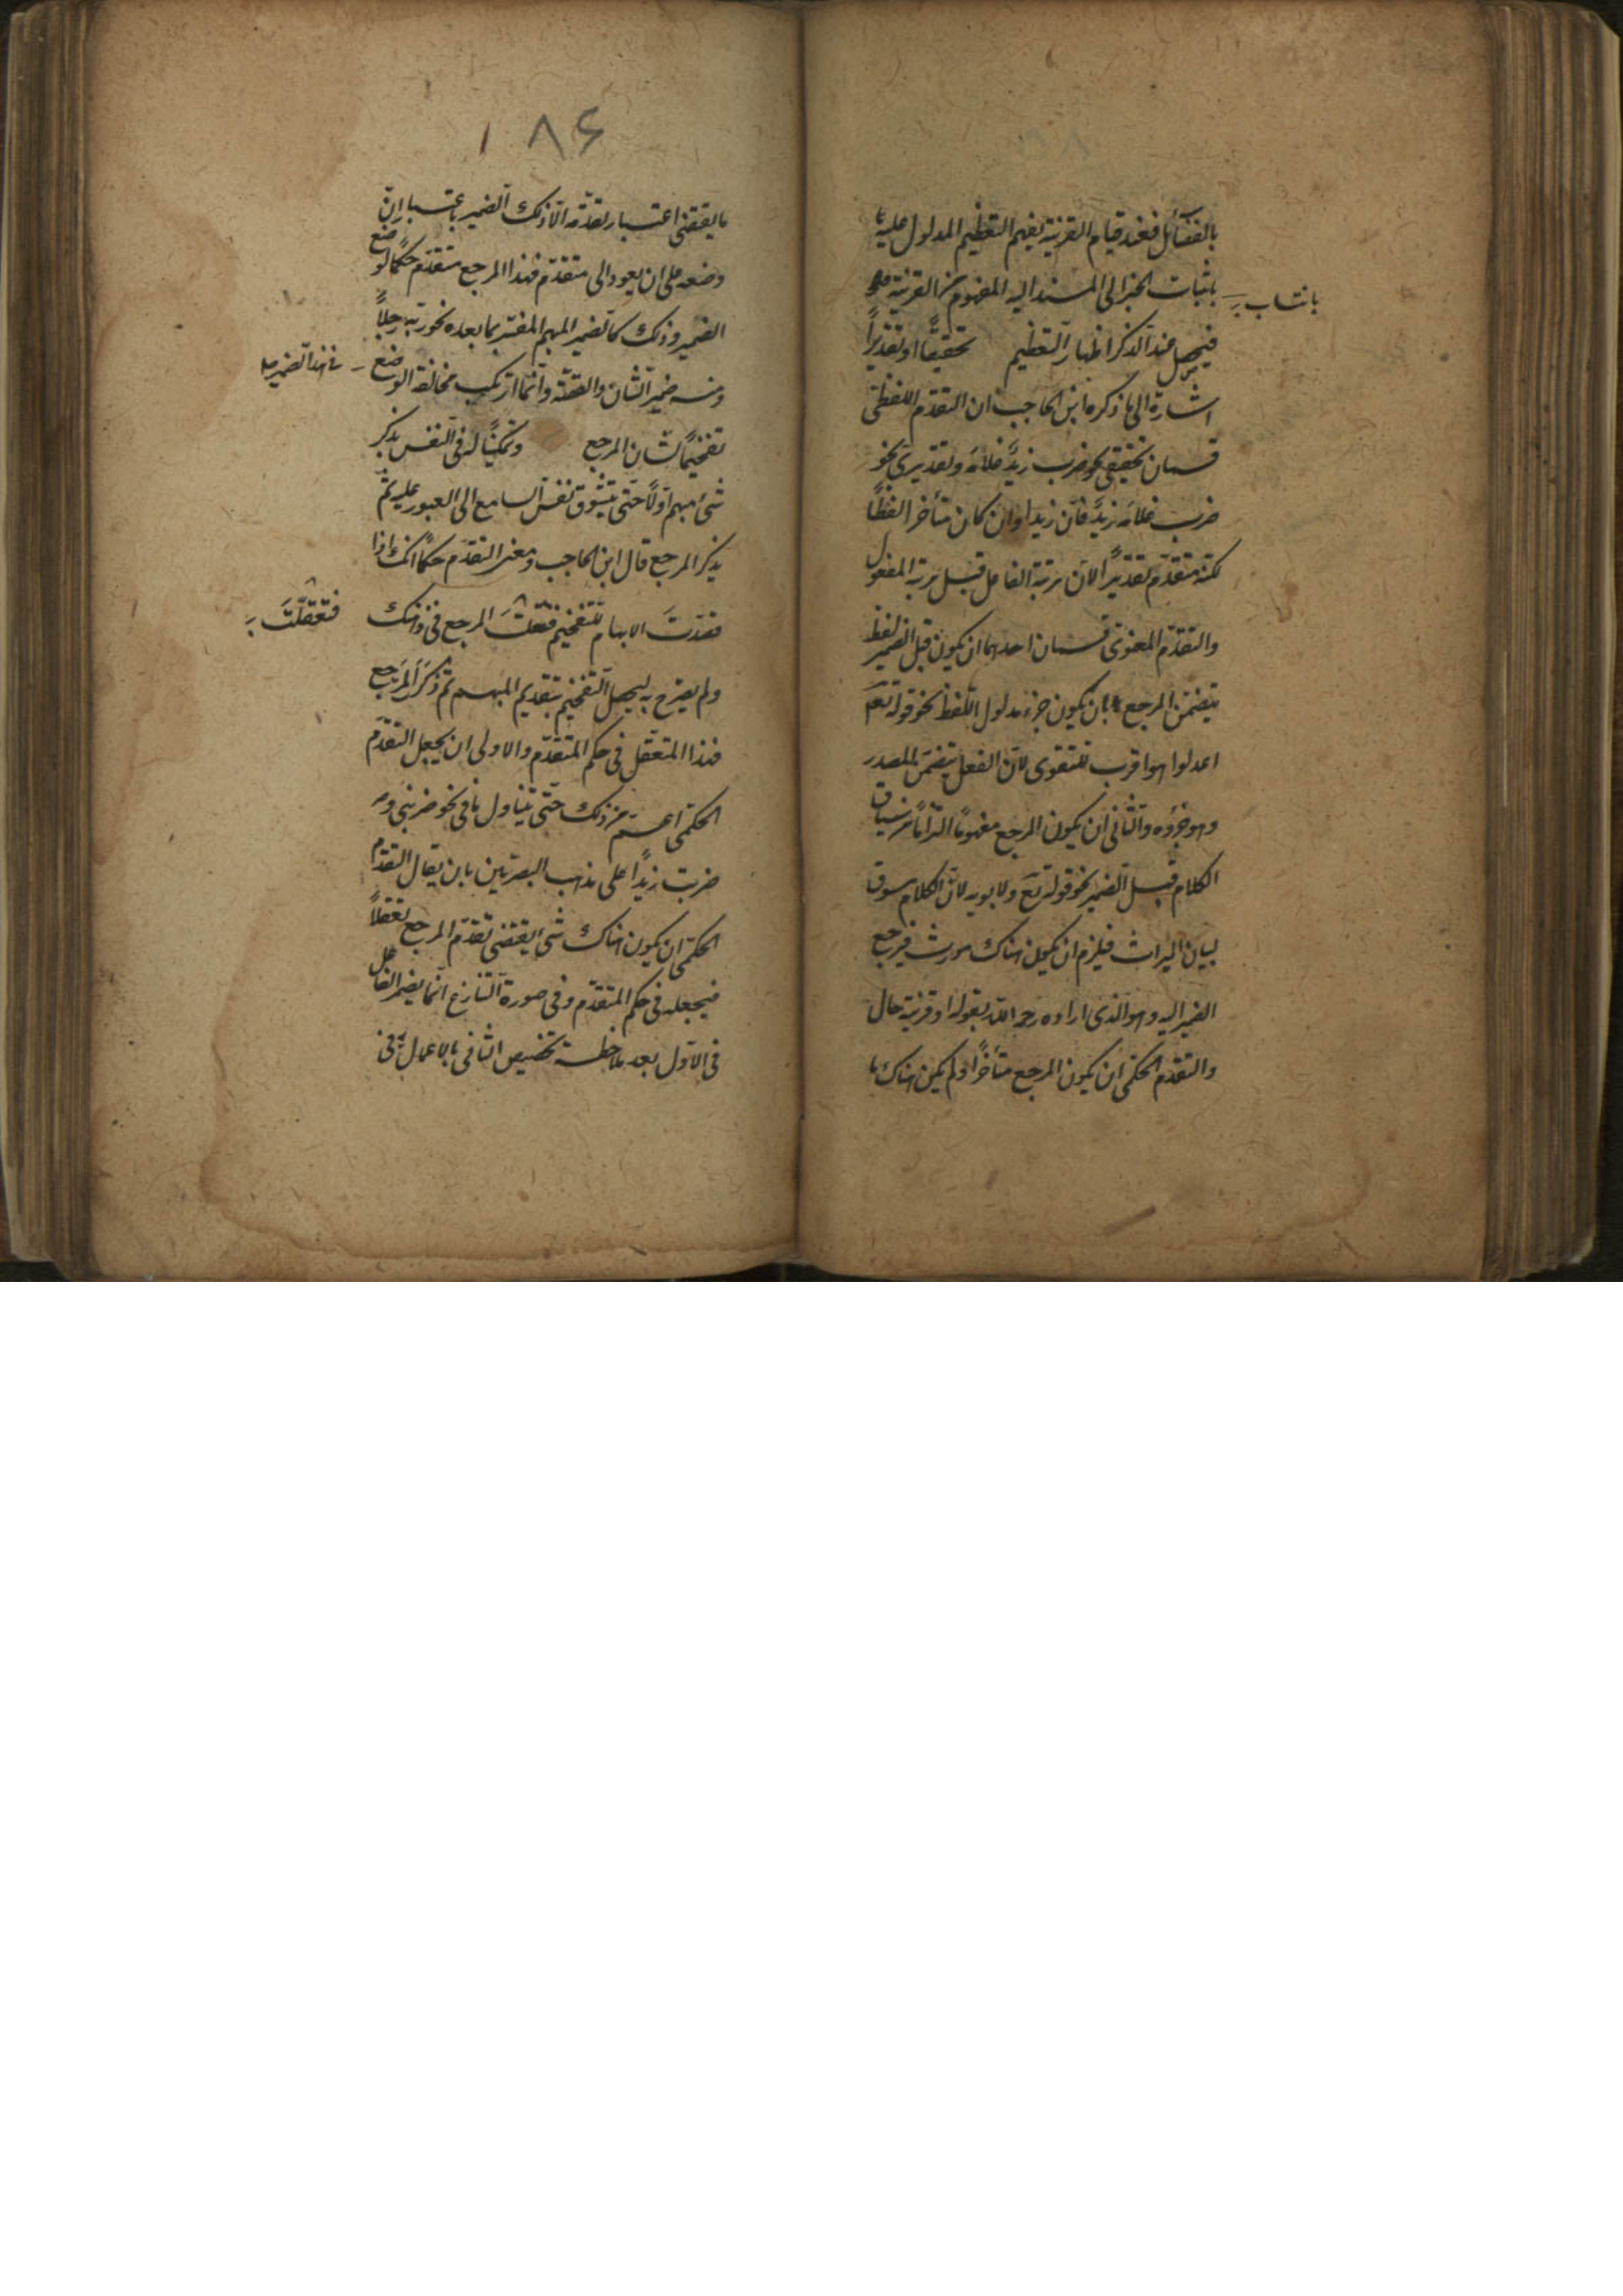 بالفضائل فعند قيام القرينة يفهم التعظيم المدلول عليه
باثبات الخبر الى المسند اليه المفهوم من القرينة
بانتساب
فيحصل عند الذكر اظهار التعظيم تحقيقًا او تقديرًا
اشارة الى ما ذكره ابن الحاجب ان التقدّم اللفظى
قسمان تحقيقى نحو ضرب زيدٌ غلامَه وتقديرى نحو
ضرب غلامَه زيدٌ فان زيدا وان كان متأخرا لفظًا
لكنه متقدّم تقديرًا لانّ مرتبة الفاعل قبل مرتبة المفعول
والتقدّم المعنوى قسمان احدهما ان يكون قبل الضمير لفظ
يتضمّن المرجع بان يكون جزء مدلول اللفظ نحو قوله تع
اعدلوا هو اقرب للتقوى لانّ الفعل يتضمّن المصدر
وهو جزؤه والثانى ان يكون المرجع مفهومًا التزامًا من سياق
الكلام قبل الضمير نحو قوله تع ولابويه لانّ الكلام سوق
لبيان الميراث فيلزم ان يكون هناك مورث فيرجع
الضمير اليه وهو الذى اراده رحمه الله بقوله او قرينة حال
والتقدّم الحكمى ان يكون المرجع متأخرًا ولم يكن هناك ما
١٨۶
ما يقتضى اعتبار تقدّمه الّا ذلك الضمير باعتبار انّ
وضعه على ان يعود الى متقدّم فهذا المرجع متقدّم حكمًا لوضع
الضمير وذلك كالضمير المبهم المفسّر بما بعده نحو ربّه رجلًا
ومنه ضمير الشان والقصّة وانّما ارتكب مخالفة الوضع
فى هذا الضمير
تفخيمًا لشان المرجع وتمكينًا له فى النفس بذكر
شئ مبهم اولًا حتى يتشوق نفس السامع الى العبور عليه ثمّ
يذكر المرجع قال ابن الحاجب ومعنى التقدّم حكمًا انك اذا
قصدتَ الابهام للتفخيم فتعقلتَ المرجع فى ذهنك
فتعقّلتَ
ولم يصرّح به ليحصل التفخيم بتقديم المبهم ثم ذكر المرجع
فهذا المتعقّل فى حكم المتقدّم والاولى ان يجعل التقدّم
الحكمى اعمّ من ذلك حتّى يتناول ما فى نحو ضربنى و
ضربت زيدًا على مذهب البصريّين بان يقال التقدّم
الحكمى ان يكون هناك شئ يقتضى تقدّم المرجع تعقلًا
فيجعله فى حكم المتقدّم وفى صورة التنازع انّما يضمر الفاعل
فى الاوّل بعد ملاحظة تخصيص الثانى بالاعمال